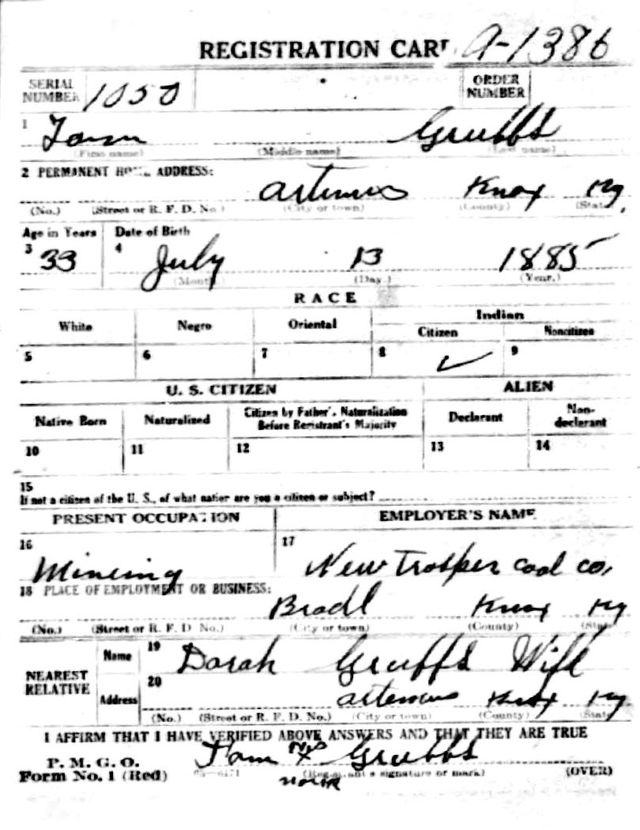 REGISTRATION CARD A-1386
SERIAL NUMBER 1050 ORDER NUMBER
1 Tom Grubbs
(First name) (Middle name) (Last name)
2 PERMANENT HOME ADDRESS:
Artemus Knox Ky.
(No.) (Street or R. F. D. No.) (City or town) (County) (State)
Age in Years Date of Birth
3 33 4 July 13 1885
(Month) (Day.) (Year.)
RACE
White Negro Oriental Indian
Citizen Noncitizen
5 6 7 8 ✓ 9
U. S. CITIZEN ALIEN
Native Born Naturalized Citizen by Father's Naturalization Before Registrant's Majority Declarant Non-declarant
10 11 12 13 14
15
If not a citizen of the U. S., of what nation are you a citizen or subject?
PRESENT OCCUPATION EMPLOYER'S NAME
16 Mineing 17 New Trosper Coal Co,
18 PLACE OF EMPLOYMENT OR BUSINESS:
Knox Ky
(No.) (Street or R. F. D. No.) (City or town) (County) (State)
NEAREST RELATIVE Name 19 Dorah Grubbs Wife
Address 20 Artemus Knox Ky
(No.) (Street or R. F. D. No.) (City or town) (County) (State)
I AFFIRM THAT I HAVE VERIFIED ABOVE ANSWERS AND THAT THEY ARE TRUE
P. M. G. O.
Form No. 1 (Red) Tom his X Grubbs
mark (Registrant's signature or mark) (OVER)